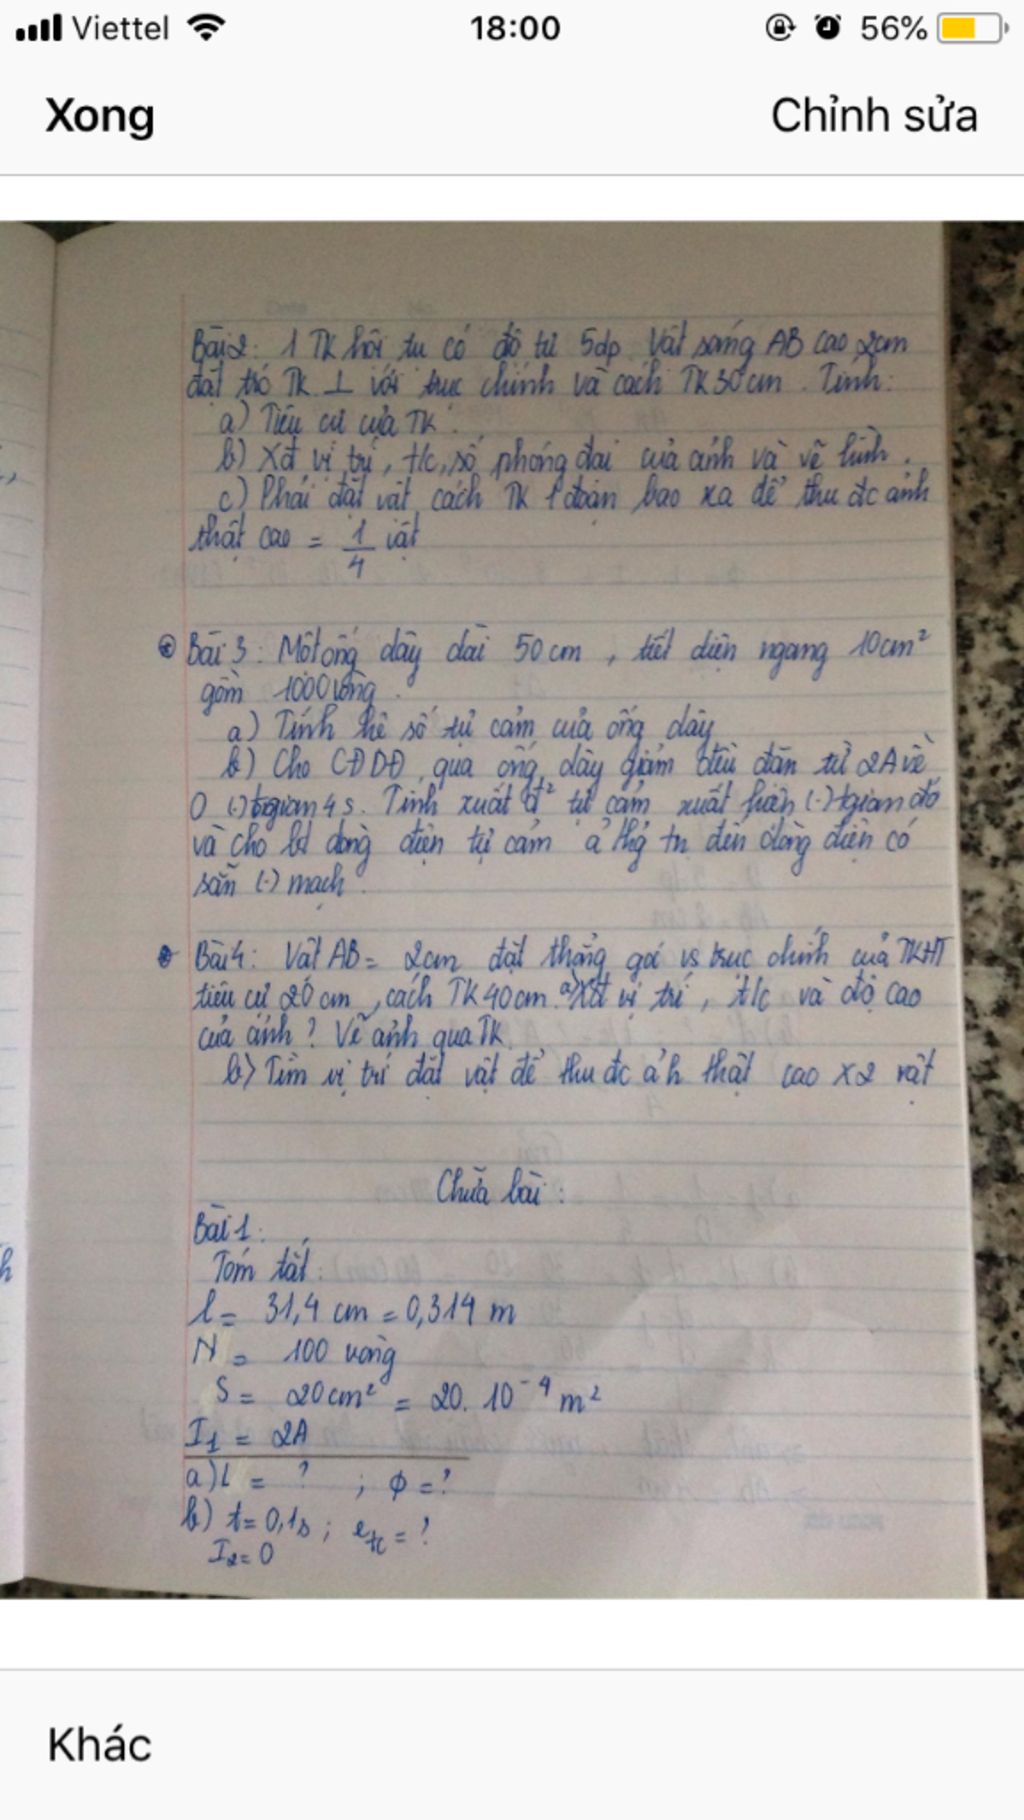 Viettel 18:00 56%
Xong Chỉnh sửa
Bài 2: 1 TK hội tụ có độ tụ 5dp. Vật sáng AB cao 2cm
đặt trc TK ⊥ với trục chính và cách TK 30cm. Tính:
a) Tiêu cự của TK.
b) Xđ vị trí, t/c, số phóng đại của ảnh và vẽ hình.
c) Phải đặt vật cách TK 1 đoạn bao xa để thu đc ảnh
thật cao = 1/4 vật
Bài 3: Một ống dây dài 50cm, tiết diện ngang 10cm²
gồm 1000 vòng.
a) Tính hệ số tự cảm của ống dây
b) Cho CĐDĐ qua ống dây giảm đều đặn từ 2A về
0 (.) tgian 4s. Tính xuất đ² tự cảm xuất hiện (.) tgian đó
và cho bt dòng điện tự cảm ả' thg tn đến dòng điện có
sẵn (.) mạch.
Bài 4: Vật AB = 2cm đặt thẳng góc vs trục chính của TKHT
tiêu cự 20cm, cách TK 40cm. a) Xđ vị trí, t/c và độ cao
của ảnh? Vẽ ảnh qua TK.
b) Tìm vị trí đặt vật để thu đc ảh thật cao x2 vật
Chữa bài:
Bài 1:
Tóm tắt:
l = 31,4 cm = 0,314 m
N = 100 vòng
S = 20cm² = 20. 10⁻⁴ m²
I₁ = 2A
a) L = ? ; ϕ = ?
b) t = 0,1s ; e_tc = ?
I₂ = 0
Khác